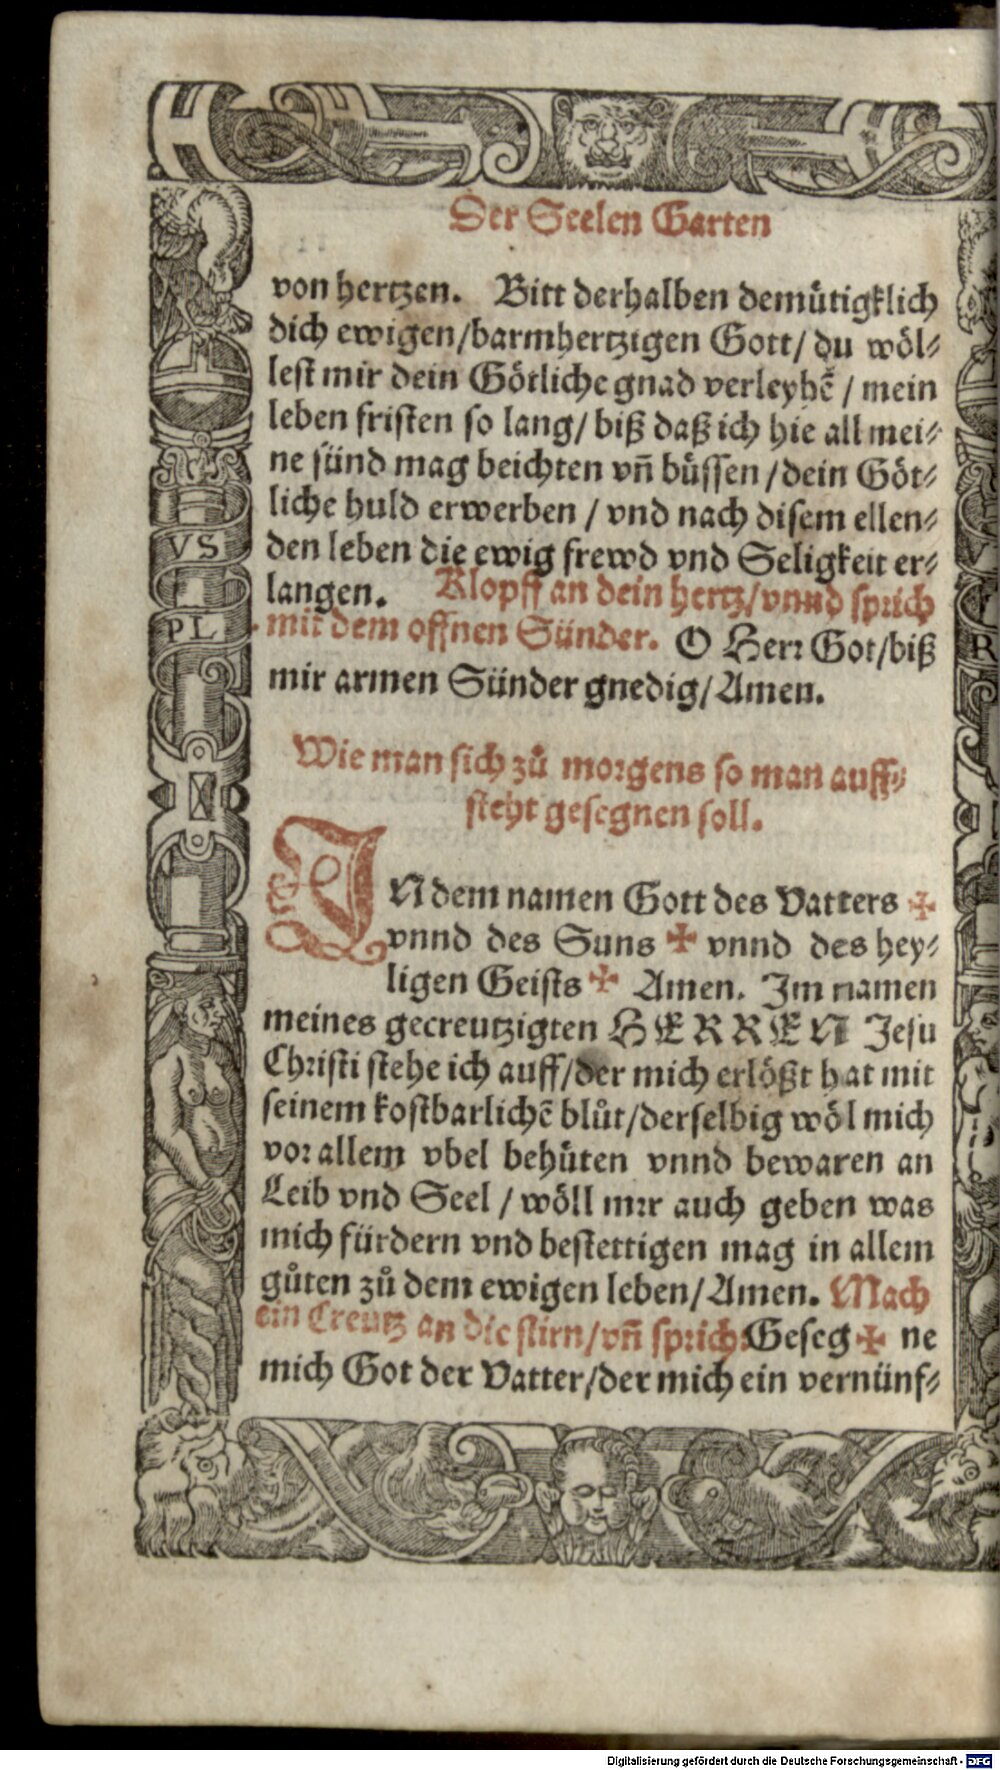 Der Seelen Garten
von hertzen. Bitt derhalben demütigklich
dich ewigen/barmhertzigen Gott/ du wöl⸗
lest mir dein Götliche gnad verleyhē / mein
leben fristen so lang/ biß daß ich hie all mei⸗
ne sünd mag beichten vñ büssen /dein Göt⸗
liche huld erwerben / vnd nach disem ellen⸗
den leben die ewig frewd vnd Seligkeit er⸗
langen. Klopff an dein hertz/vnnd sprich
mit dem offnen Sünder. O Herr Got/biß
mir armen Sünder gnedig/Amen.
Wie man sich zů morgens so man auff⸗
steht gesegnen soll.
IN dem namen Gott des Vatters ✠
vnnd des Suns ✠ vnnd des hey⸗
ligen Geists ✠ Amen. Im namen
meines gecreutzigten HERREN Jesu
Christi stehe ich auff/der mich erlößt hat mit
seinem kostbarlichē blůt/derselbig wöl mich
vor allem vbel behüten vnnd bewaren an
Leib vnd Seel / wöll mir auch geben was
mich fürdern vnd bestettigen mag in allem
gůten zů dem ewigen leben/Amen. Mach
ein Creutz an die stirn/vñ sprich: Geseg ✠ ne
mich Got der Vatter/der mich ein vernünf⸗
VS
PL
V
R
Digitalisierung gefördert durch die Deutsche Forschungsgemeinschaft - DFG